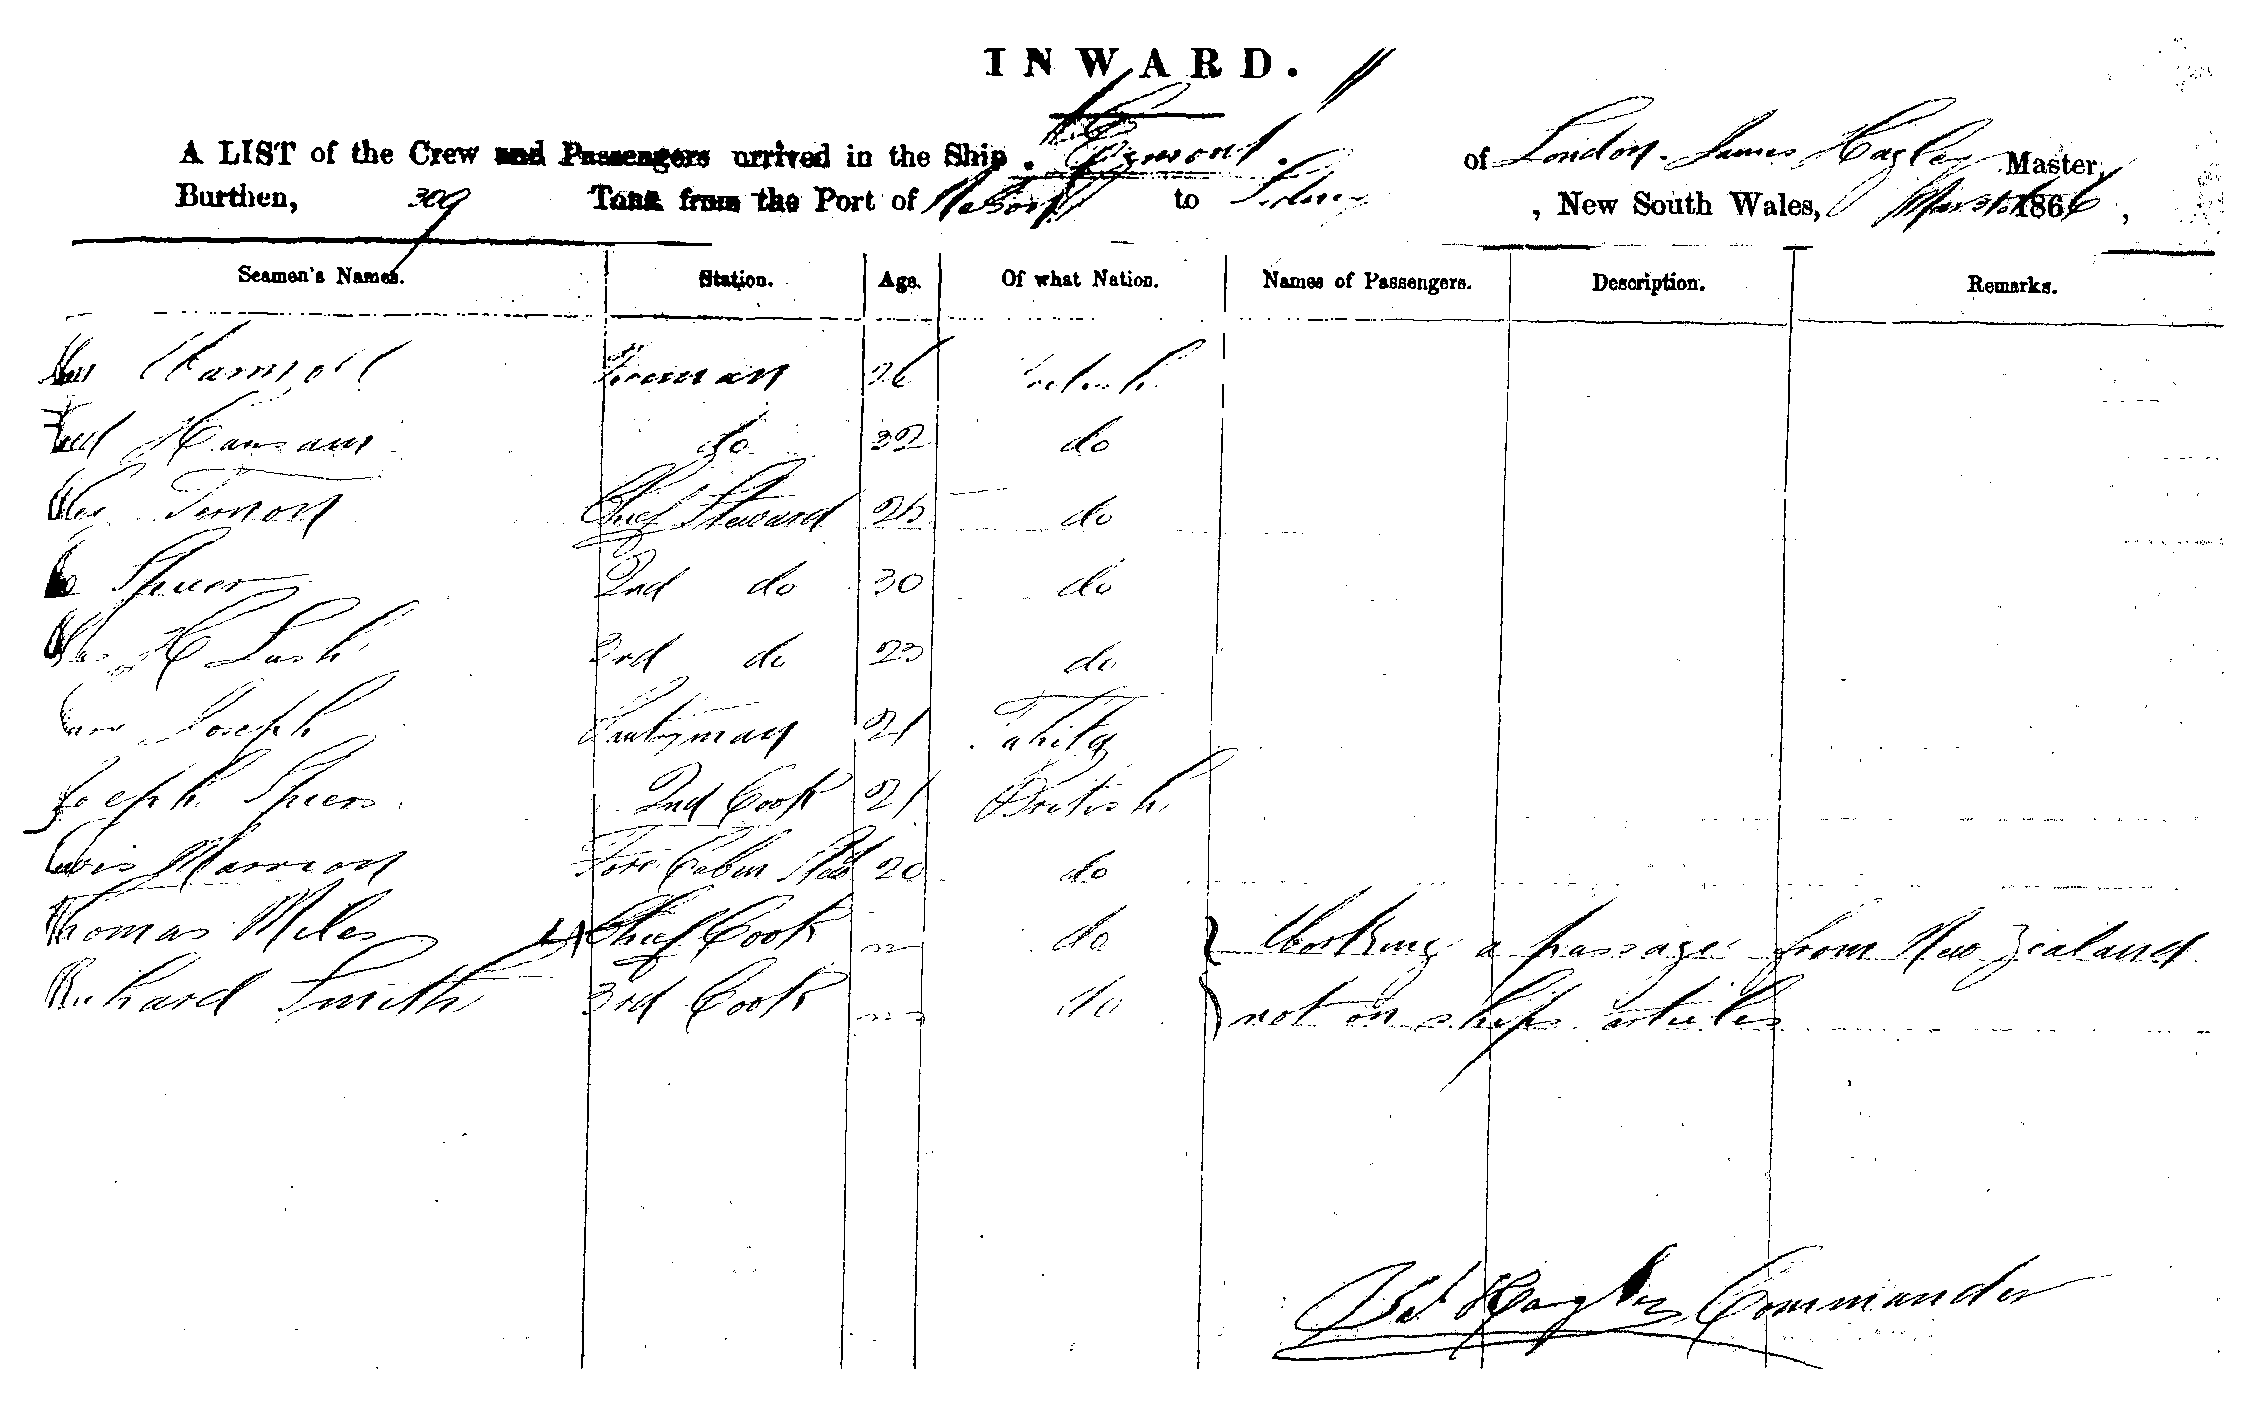 INWARD.
A LIST of the Crew and Passengers arrived in the Ship Egmont of London James Hagley Master,
Burthen, 309 Tons from the Port of Nelson to Sidney, New South Wales, 1866,
Seamen's Names. Station. Age. Of what Nation. Names of Passengers. Description. Remarks.
Fireman 26
do 32 do
Chief Steward do
Spiers 2nd do 30 do
Chas H Lash 3rd do 23 do
Joseph Pantryman 21 Tahity
Joseph Spiers 2nd Cook 21 British
Fore Cabin Std 20 do
Thomas Miles Chief Cook do } Working a passage from New Zealand
Richard Smith 3rd Cook do } not on ships articles
Hagley Commander